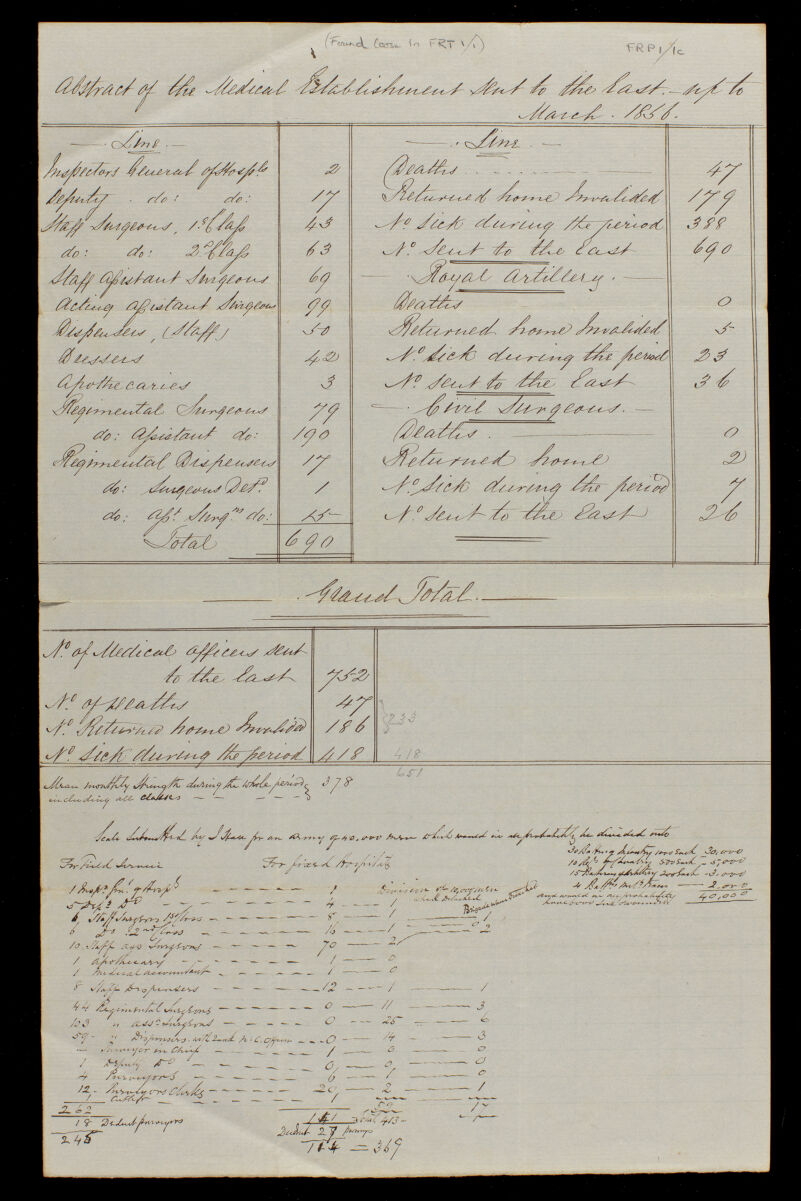 (Found loose in FRT 1/1)
FRP1/1c
Abstract of the Medical Establishment sent to the East. - up to
March. 1856.
Line
Inspectors General of Hospls 2
Deputy do: do: 17
Staff Surgeons, 1st Class 43
do: do: 2d Class 63
Staff Assistant Surgeons 69
Acting Assistant Surgeons 99
Dispensers, (Staff) 50
Dressers 42
Apothecaries 3
Regimental Surgeons 79
do: Assistant do: 190
Regimental Dispensers 17
do: Surgeons Detd. 1
do: Asst. Surgns do: 15
Total 690
Line
Deaths 47
Returned home Invalided 179
No. Sick during the period 388
No. Sent to the East 690
Royal Artillery.
Deaths 0
Returned home Invalided 5
No. Sick during the period 23
No. Sent to the East 36
Civil Surgeons.
Deaths. 0
Returned home 2
No. Sick during the period 7
No. Sent to the East 26
Grand Total.
No. of Medical officers sent
to the East 752
No. of Deaths 47
No. Returned home Invalided 186 } 233
No. Sick during the period 418 418
651
Mean monthly Strength during the whole period } 378
including all classes
Scale Submitted by J Hall for an army of 40.000 men which would in all probability be divided into
30 Batns of Infantry 1000 Each - 30,000
10 Regts of Cavalry 500 Each - 5,000
15 Batteries Artillery 200 Each - 3.000
4 Battns Mily Train - 2.000
40,000
and would in all probability
have 6000 Sick & wounded
For Field Service For fixed Hospitals Division of 10,000 men
when Detached Brigade when Detached
1 Inspr. Genl of Hospls 1
5 Depy Do 4 - 1
6 Staff Surgeons 1st Class 8 - 1 - 1
6 Do 2nd Class 16 - 1 - 0 - 2
10 Staff ass Surgeons 70 - 2
1 Apothecary 1 - 0
1 Medical accountant 1 - 0
8 Staff Dispensers 12 - 1 - 1
44 Regimental Surgeons 0 - 11 - 3
103 " asst Surgeons 0 - 25 - 6
59 " Dispensers with rank N. C. Officer 0 - 14 - 3
- Purveyor in Chief 1 - 0 - 0
1 Deputy Do 0 - 0 - 0
4 Purveyors 6 - 1 - 0
12 Purveyors Clerks 20 - 2 - 1
1 Cutler 1
262 141 59 17
18 Deduct purveyors Total 413
245 Deduct 27 purveyors
114 = 369